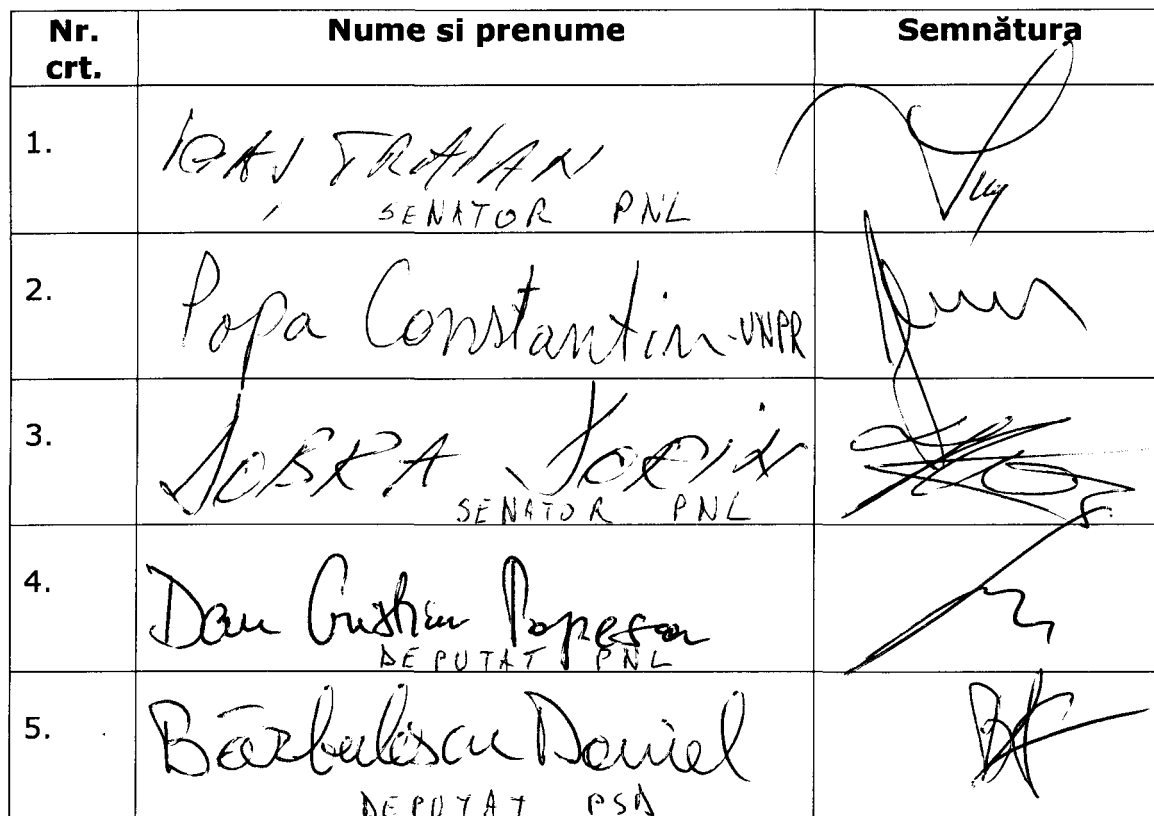 Nr. crt. Nume si prenume Semnătura
1. IGAȘ TRAIAN
SENATOR PNL
2. Popa Constantin - UNPR
3. SORIN
SENATOR PNL
4. Dan Cristian Popescu
DEPUTAT PNL
5. Bărbulescu Daniel
DEPUTAT PSD